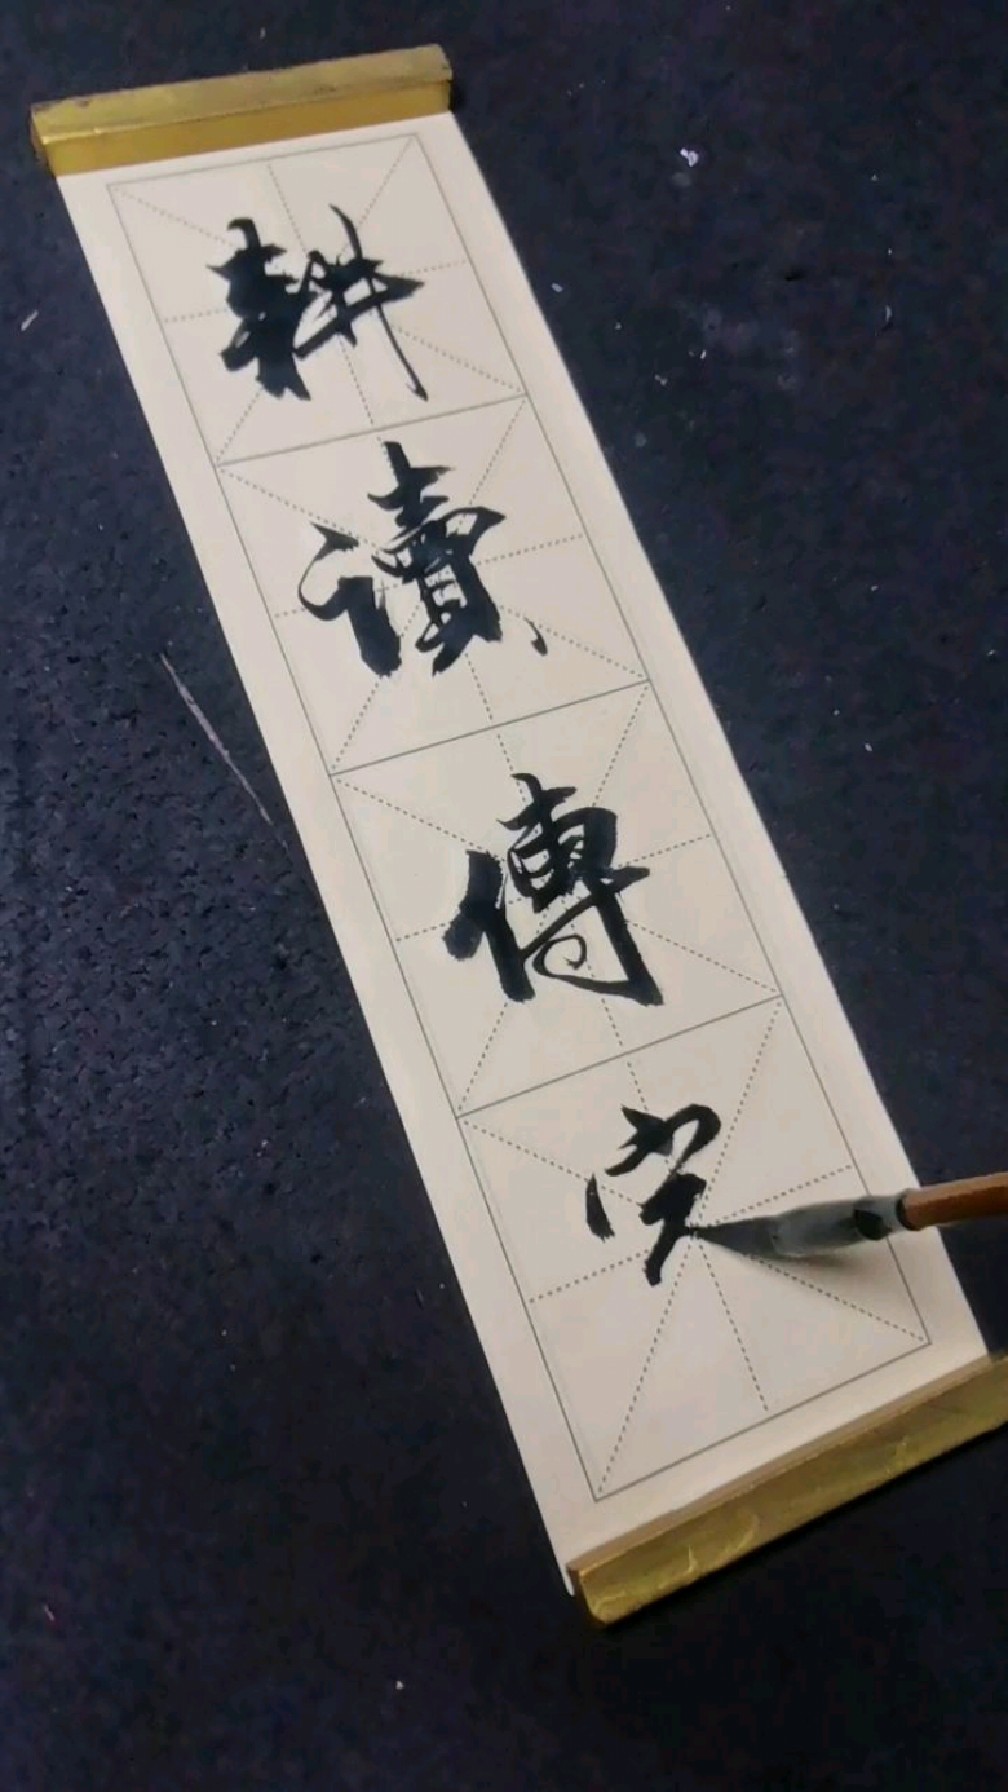 耕讀傳